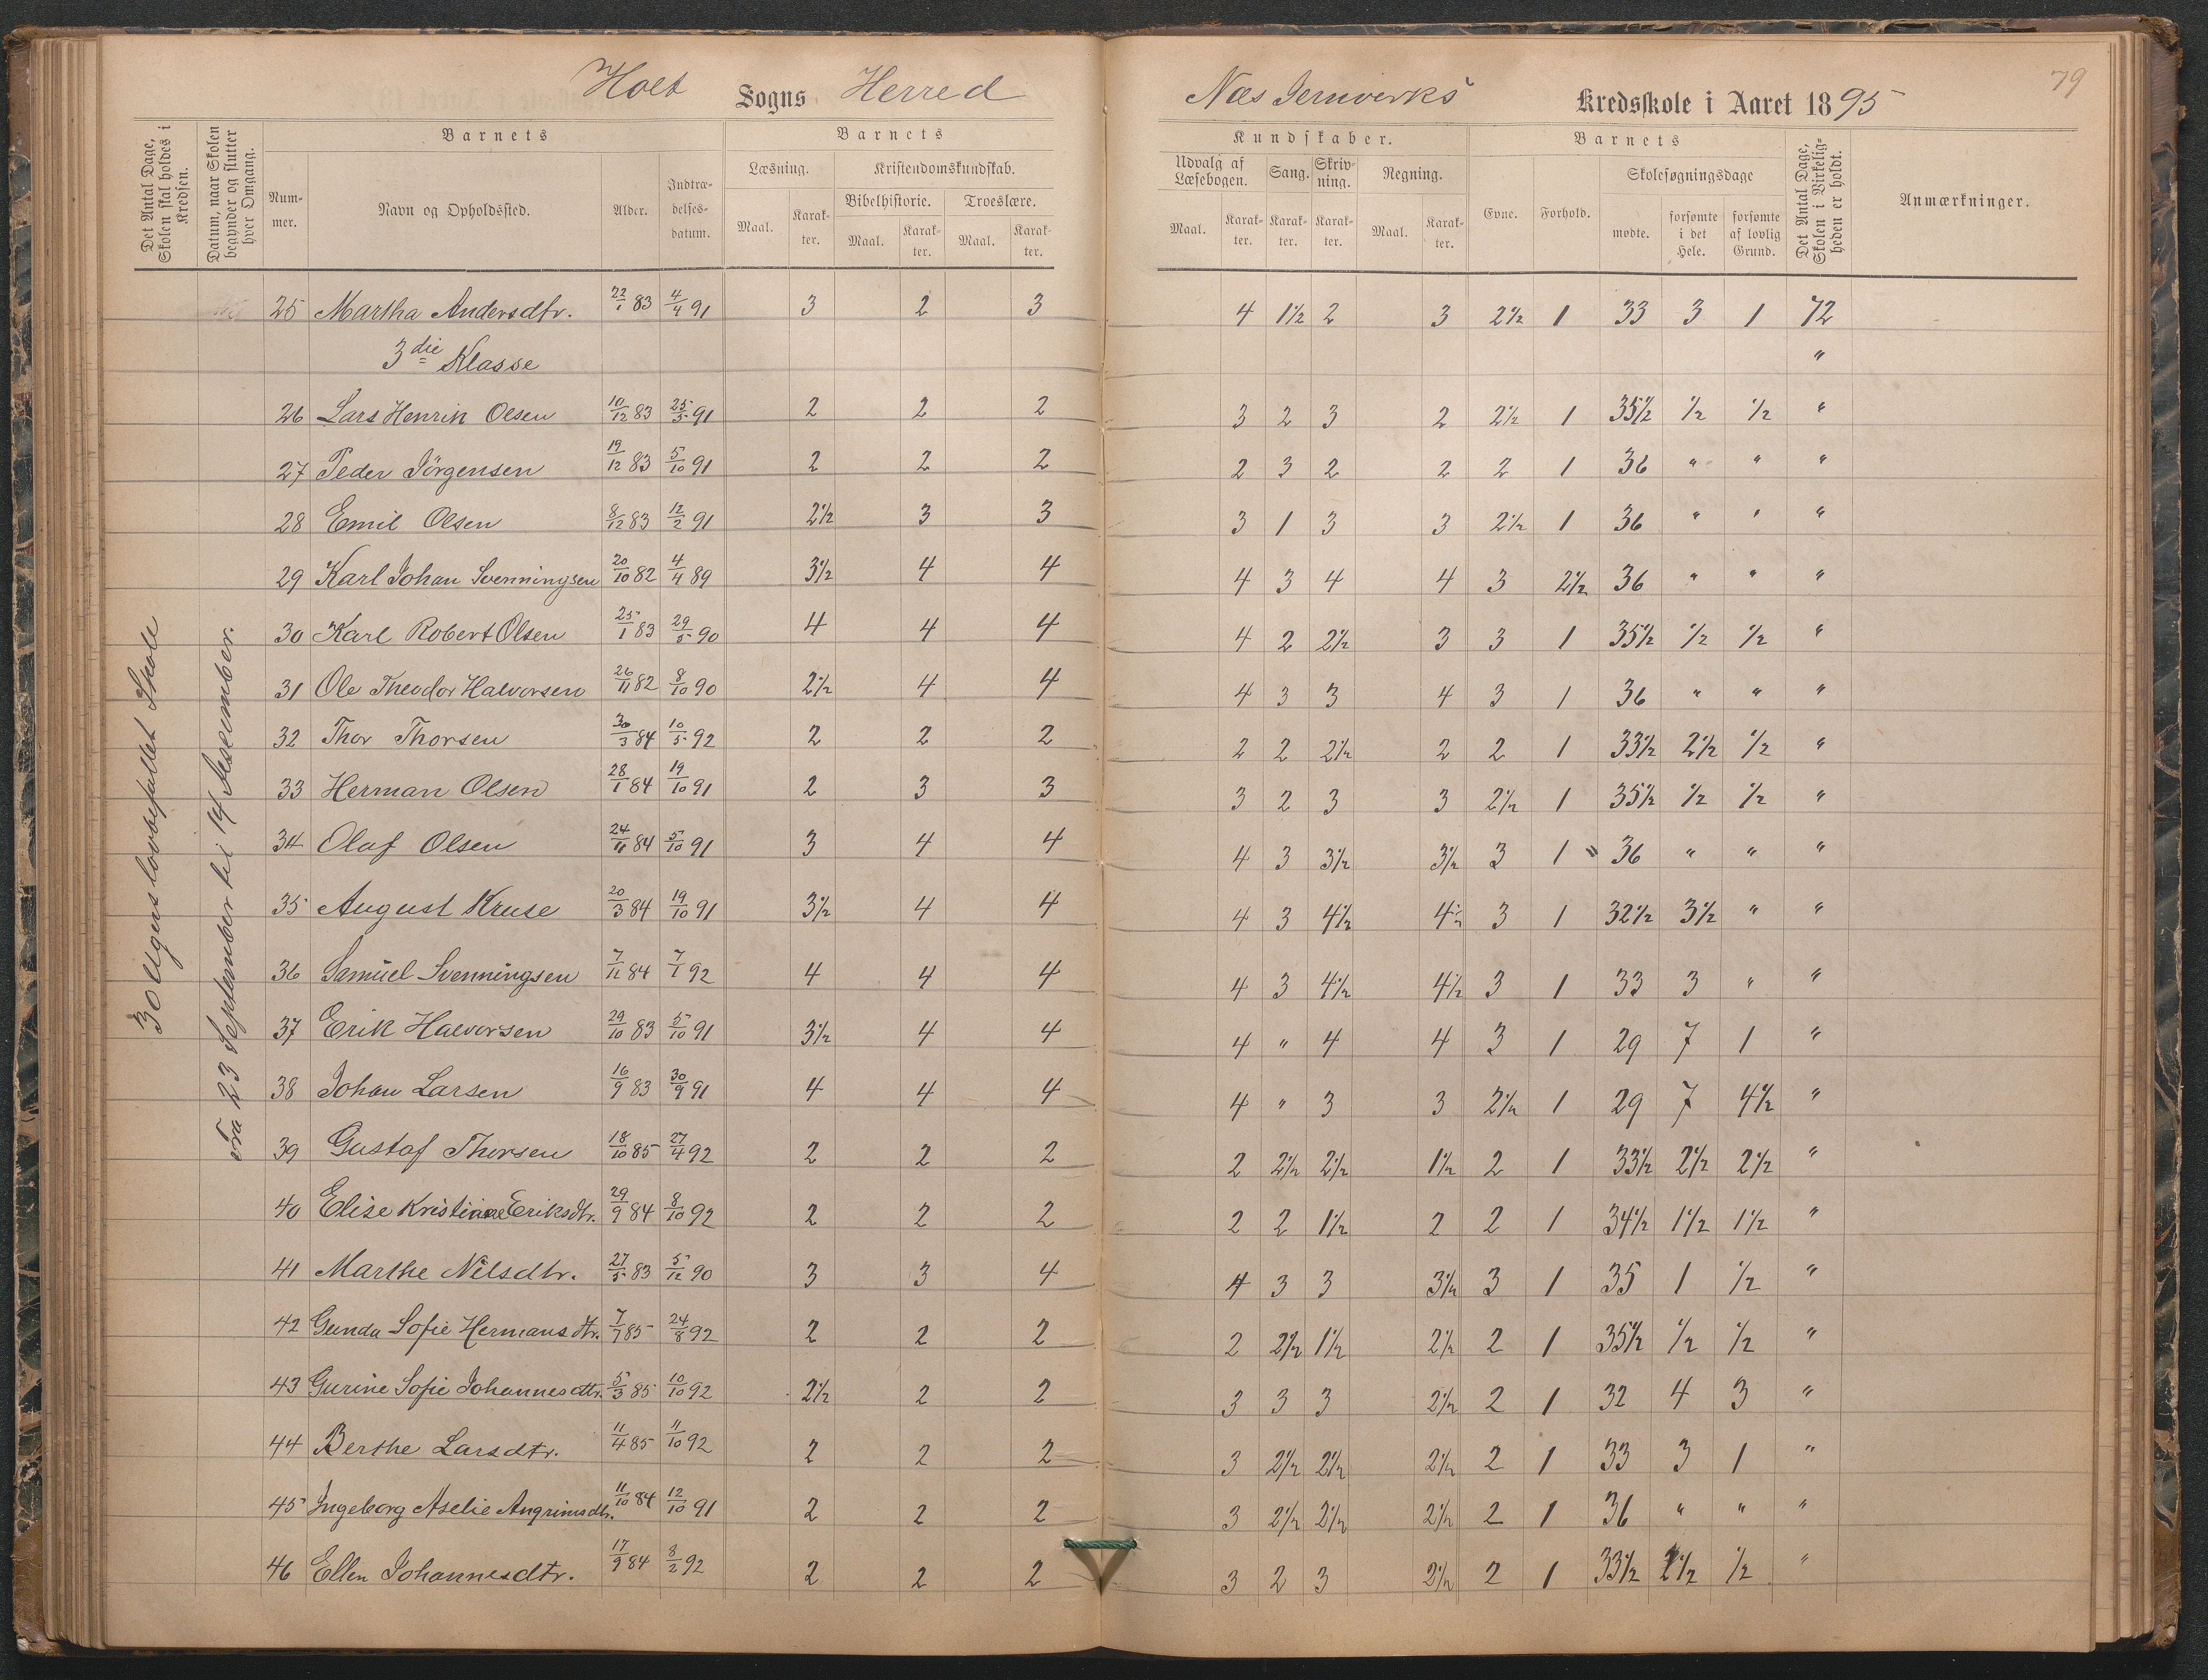 Holt Sogns Herred
Næs Jernverks Kredsskole i Aaret 1895
79
Det Antal Dage, Skolen skal holdes i Kredsen.
Datum, naar Skolen begynder og slutter hver Omgang.
Barnets
Nummer.
Navn og Opholdssted.
Alder.
Indtrædelses-datum.
Barnets
Læsning.
Maal.
Karakter.
Kristendomskundskab.
Bibelhistorie.
Maal.
Karakter.
Troeslære.
Maal.
Karakter.
Kundskaber.
Udvalg af Læsebogen.
Maal.
Karakter.
Sang.
Karakter.
Skrivning.
Karakter.
Regning.
Maal.
Karakter.
Barnets
Evne.
Forhold.
Skolesøgningsdage
mødte.
forsømte i det Hele.
forsømte af lovlig Grund.
Det Antal Dage, Skolen i Virkeligheden er holdt.
Anmærkninger.
30 Ugers lovbefallet Skole
Fra 23 September til 14 Desember.
25 Martha Andersdtr. 22/1 83 4/4 91 3 2 3 4 1½ 2 3 2½ 1 33 3 1 72
3die Klasse "
26 Lars Henrik Olsen 10/12 83 25/5 91 2 2 2 3 2 3 2 2½ 1 35½ ½ ½ "
27 Peder Jörgensen 19/12 83 5/10 91 2 2 2 2 3 2 2 2 1 36 " " "
28 Emil Olsen 8/12 83 12/2 91 2½ 3 3 3 1 3 3 2½ 1 36 " " "
29 Karl Johan Svenningsen 20/10 82 4/4 89 3½ 4 4 4 3 4 4 3 2½ 36 " " "
30 Karl Robert Olsen 25/1 83 29/5 90 4 4 4 4 2 2½ 3 3 1 35½ ½ ½ "
31 Ole Theodor Halvorsen 26/11 82 8/10 90 2½ 4 4 4 3 3 4 3 1 36 " " "
32 Thor Thorsen 30/3 84 10/5 92 2 2 2 2 2 2½ 2 2 1 33½ 2½ ½ "
33 Herman Olsen 28/1 84 19/10 91 2 3 3 3 2 3 3 2½ 1 35½ ½ ½ "
34 Olaf Olsen 24/11 84 5/10 91 3 4 4 4 3 3½ 3½ 3 1 36 " " "
35 August Kruse 20/3 84 19/10 91 3½ 4 4 4 3 4½ 4½ 3 1 32½ 3½ " "
36 Samuel Svenningsen 7/11 84 7/1 92 4 4 4 4 3 4½ 4½ 3 1 33 3 " "
37 Erik Halvorsen 29/10 83 5/10 91 3½ 4 4 4 " 4 4 3 1 29 7 1 "
38 Johan Larsen 16/9 83 30/9 91 4 4 4 4 " 3 3 2½ 1 29 7 4½ "
39 Gustaf Thorsen 18/10 85 27/4 92 2 2 2 2 2½ 2½ 1½ 2 1 33½ 2½ 2½ "
40 Elise Kristiane Eriksdtr. 29/9 84 8/10 92 2 2 2 2 2 1½ 2 2 1 34½ 1½ 1½ "
41 Marthe Nilsdtr. 27/5 83 5/12 90 3 3 4 4 3 3 3½ 3 1 35 1 ½ "
42 Gunda Sofie Hermansdtr. 7/7 85 24/8 92 2 2 2 2 2½ 1½ 2½ 2 1 35½ ½ ½ "
43 Gurine Sofie Johannesdtr. 5/3 85 10/10 92 2½ 2 2 3 3 3 2½ 2 1 32 4 3 "
44 Berthe Larsdtr. 11/4 85 11/10 92 2 2 2 3 2½ 2½ 2½ 2 1 33 3 1 "
45 Ingeborg Aselie Angrimsdtr. 11/10 84 12/10 91 2 2 2 3 2½ 2½ 2½ 2 1 36 " " "
46 Ellen Johannesdtr. 17/9 84 8/2 92 2 2 2 3 2 3 2½ 2 1 33½ 2½ ½ "